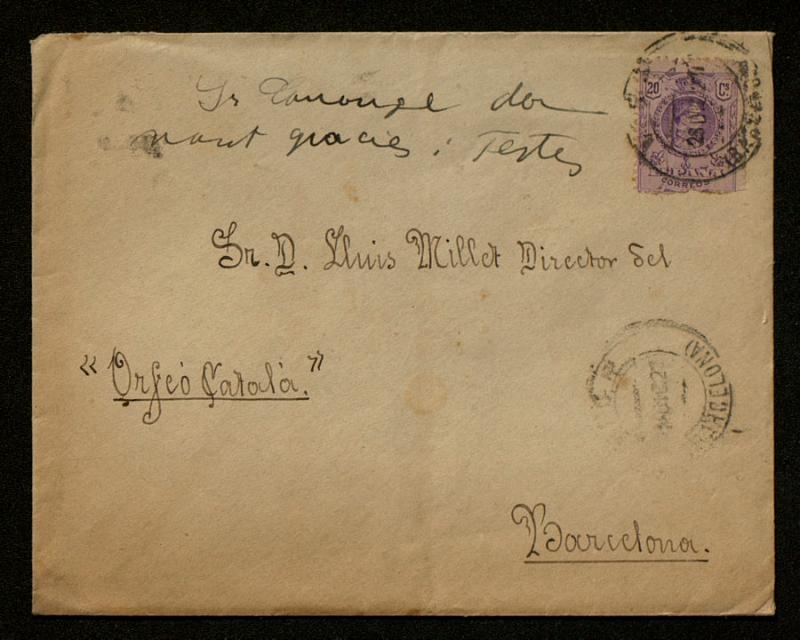 Sr Canonge don
nant gracies i Testes
20 Cs
CORREOS
Sr. D. Lluis Millet Director del
"Orfeó Català."
(BARCELONA)
Barcelona.